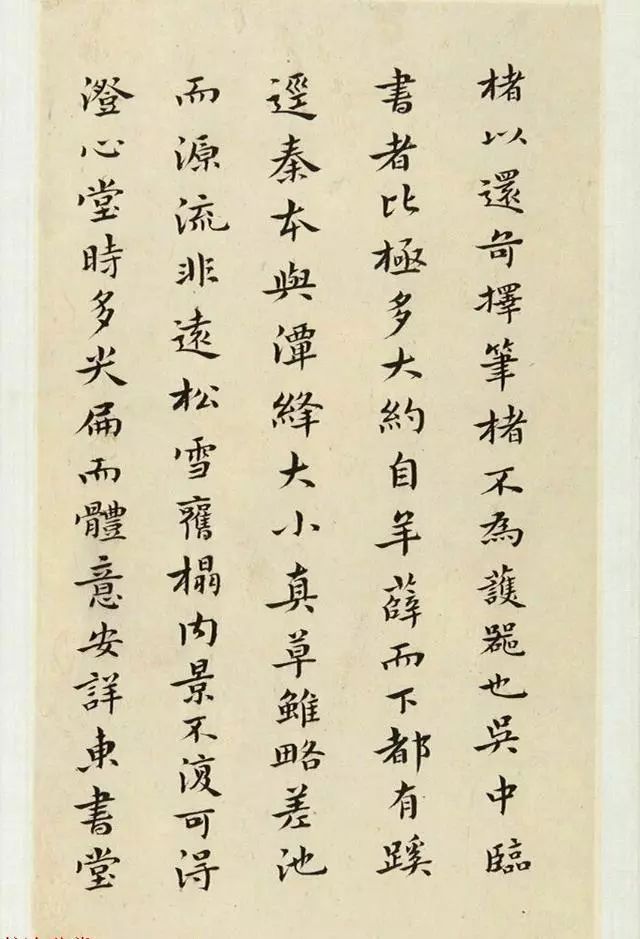 楮以還奇擇筆楮不為護器也吳中臨
書者比極多大約自羊薛而下都有蹊
逕秦本與潭絳大小真草雖略差池
而源流非遠松雪舊榻内景不復可得
澄心堂時多尖匾而體意安詳東書堂